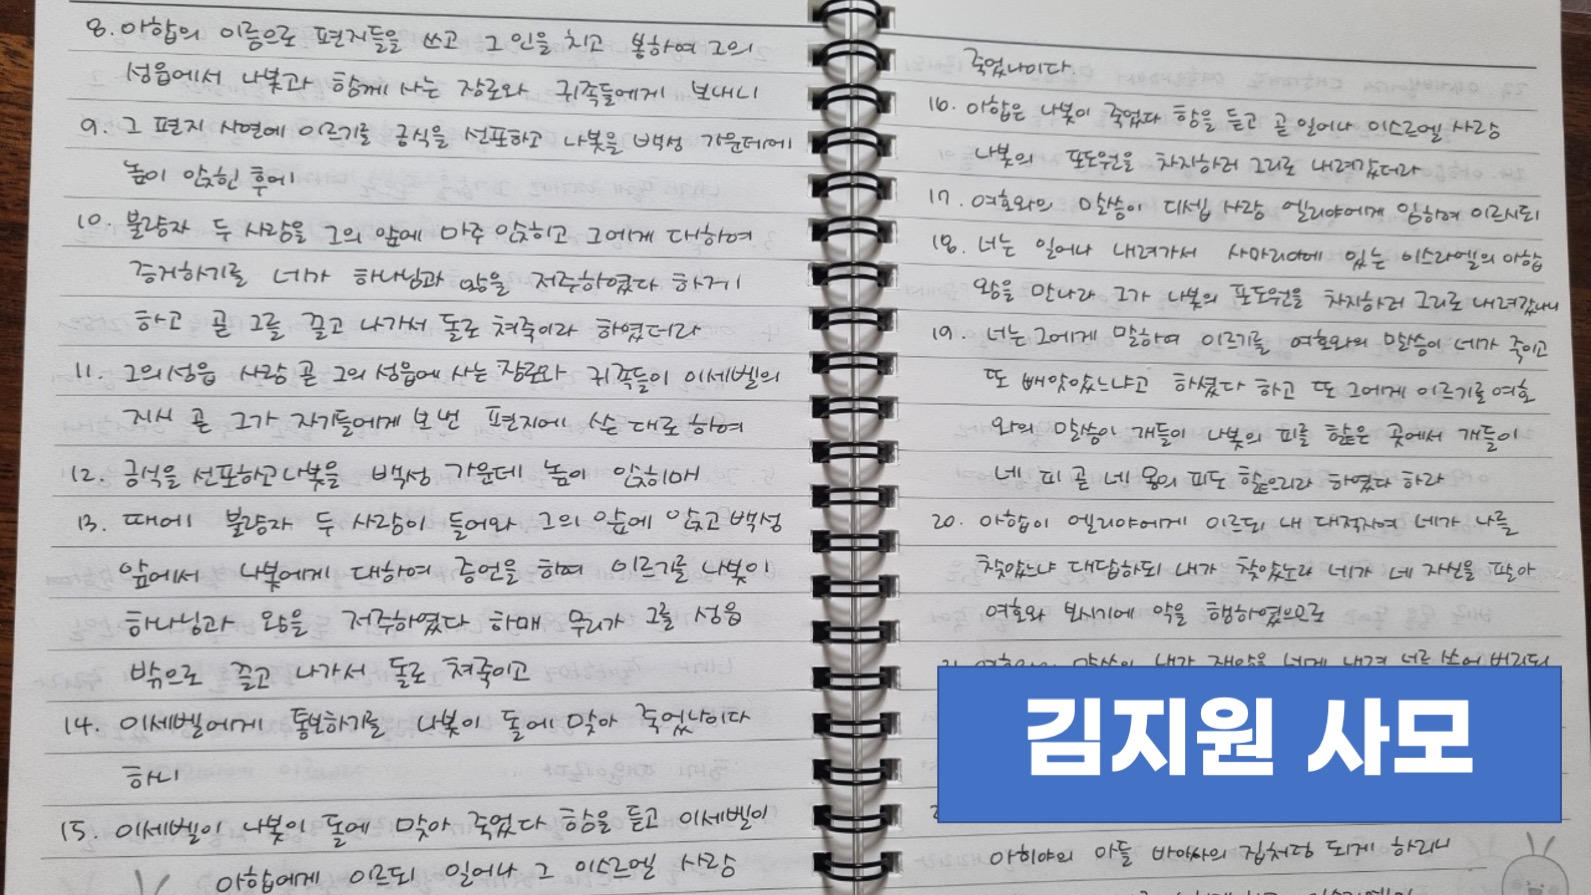 8. 아합의 이름으로 편지들을 쓰고 그 인을 치고 봉하여 그의
성읍에서 나봇과 함께 사는 장로와 귀족들에게 보내니
9. 그 편지 사연에 이르기를 금식을 선포하고 나봇을 백성 가운데에
높이 앉힌 후에
10. 불량자 두 사람을 그의 앞에 마주 앉히고 그에게 대하여
증거하기를 네가 하나님과 왕을 저주하였다 하게
하고 곧 그를 끌고 나가서 돌로 쳐죽이라 하였더라
11. 그의 성읍 사람 곧 그의 성읍에 사는 장로와 귀족들이 이세벨의
지시 곧 그가 자기들에게 보낸 편지에 쓴 대로 하여
12. 금식을 선포하고 나봇을 백성 가운데 높이 앉히매
13. 때에 불량자 두 사람이 들어와 그의 앞에 앉고 백성
앞에서 나봇에게 대하여 증언을 하여 이르기를 나봇이
하나님과 왕을 저주하였다 하매 무리가 그를 성읍
밖으로 끌고 나가서 돌로 쳐죽이고
14. 이세벨에게 통보하기를 나봇이 돌에 맞아 죽었나이다
하니
15. 이세벨이 나봇이 돌에 맞아 죽었다 함을 듣고 이세벨이
아합에게 이르되 일어나 그 이스르엘 사람
죽었나이다
16. 아합은 나봇이 죽었다 함을 듣고 곧 일어나 이스르엘 사람
나봇의 포도원을 차지하러 그리로 내려갔더라
17. 여호와의 말씀이 디셉 사람 엘리야에게 임하여 이르시되
18. 너는 일어나 내려가서 사마리아에 있는 이스라엘의 아합
왕을 만나라 그가 나봇의 포도원을 차지하러 그리로 내려갔나니
19. 너는 그에게 말하여 이르기를 여호와의 말씀이 네가 죽이고
또 빼앗았느냐고 하셨다 하고 또 그에게 이르기를 여호
와의 말씀이 개들이 나봇의 피를 핥은 곳에서 개들이
네 피 곧 네 몸의 피도 핥으리라 하였다 하라
20. 아합이 엘리야에게 이르되 내 대적자여 네가 나를
찾았느냐 대답하되 내가 찾았노라 네가 네 자신을 팔아
여호와 보시기에 악을 행하였으므로
말씀이 내가 재앙을 네게 내려 너를 쓸어 버리되
김지원 사모
아히야의 아들 바아사의 집처럼 되게 하리니